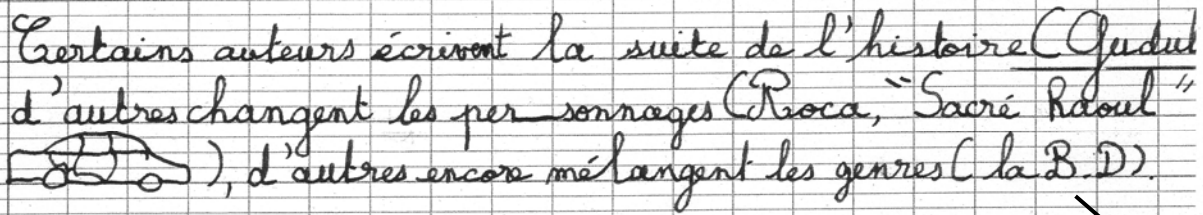 Certains auteurs écrivent la suite de l'histoire (Gudul
d'autres changent les personnages (Roca, "Sacré Raoul"
), d'autres encore mélangent les genres (la B.D).